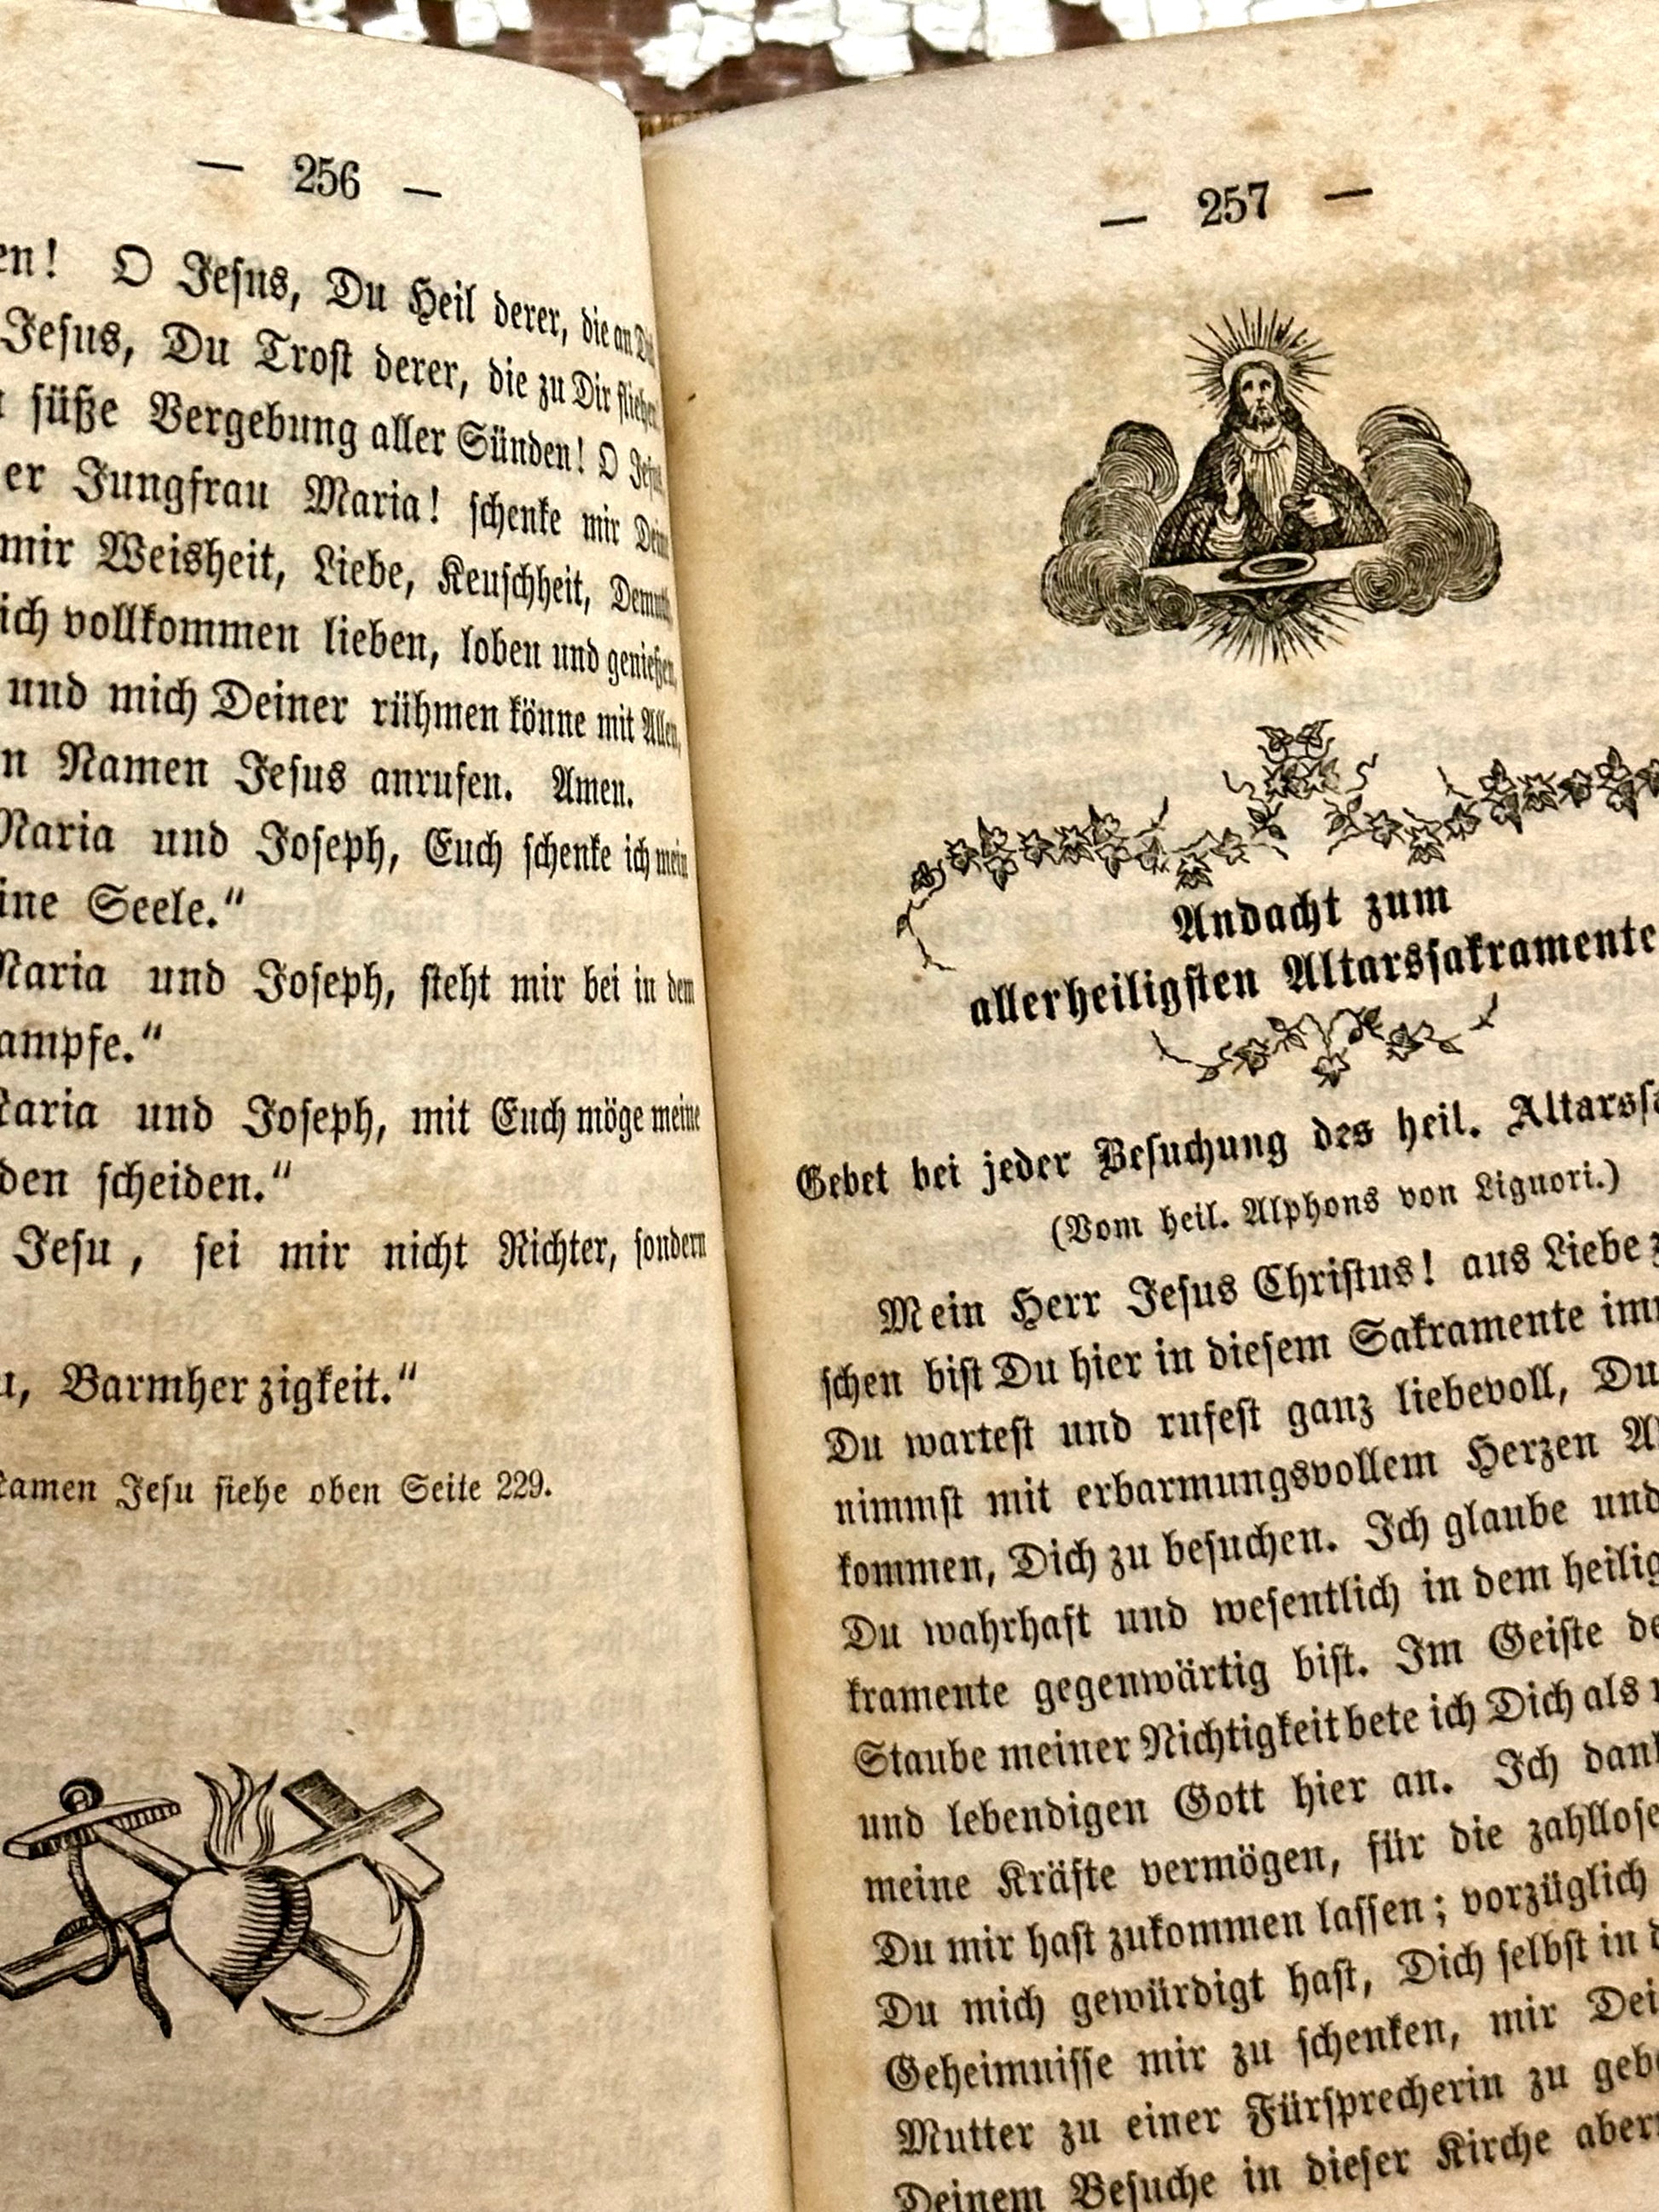 — 256 —
en! O Jesus, Du Heil derer, die an
Jesus, Du Trost derer, die zu Dir fliehen
süße Vergebung aller Sünden! O Jesu
er Jungfrau Maria! schenke mir Deine
mir Weisheit, Liebe, Keuschheit, Demuth,
ich vollkommen lieben, loben und genießen,
und mich Deiner rühmen könne mit Allen,
n Namen Jesus anrufen. Amen.
Maria und Joseph, Euch schenke ich mein
ine Seele.“
Maria und Joseph, steht mir bei in dem
ampfe.“
Maria und Joseph, mit Euch möge meine
den scheiden.“
Jesu, sei mir nicht Richter, sondern
u, Barmherzigkeit.“
Namen Jesu siehe oben Seite 229.
— 257 —
Andacht zum
allerheiligsten Altarssakramente
Gebet bei jeder Besuchung des heil. Altarssa
(Vom heil. Alphons von Liguori.)
Mein Herr Jesus Christus! aus Liebe z
schen bist Du hier in diesem Sakramente imm
Du wartest und rufest ganz liebevoll, Du
nimmst mit erbarmungsvollem Herzen Al
kommen, Dich zu besuchen. Ich glaube und
Du wahrhaft und wesentlich in dem heilig
kramente gegenwärtig bist. Im Geiste de
Staube meiner Nichtigkeit bete ich Dich als
und lebendigen Gott hier an. Ich dank
meine Kräfte vermögen, für die zahllose
Du mir hast zukommen lassen; vorzüglich
Du mich gewürdigt hast, Dich selbst in d
Geheimnisse mir zu schenken, mir Dei
Mutter zu einer Fürsprecherin zu gebe
Deinem Besuche in dieser Kirche aber